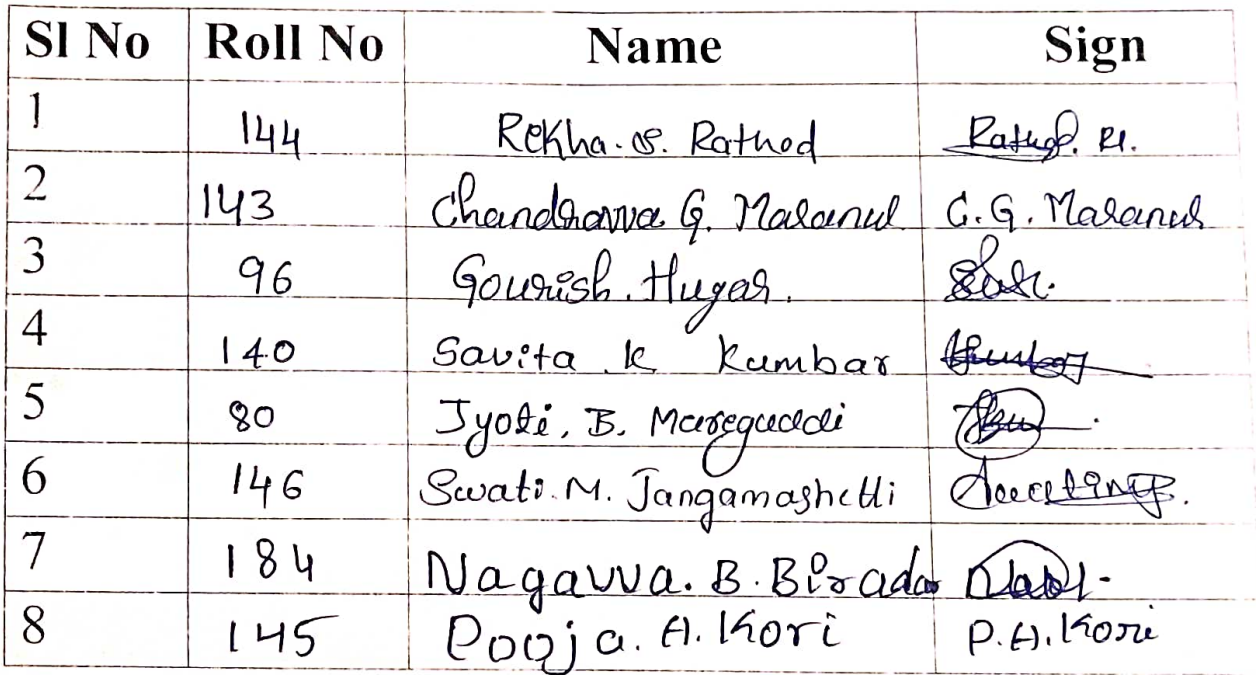 Sl No Roll No Name Sign
1 144 Rekha. S. Rathod Rathod. R.
2 143 Chandravva G. Malanul C.G. Malanul
3 96 Gourish. Hugar.
4 140 Savita k Kumbar Kumbar
5 80 Jyoti, B. Mareguddi
6 146 Swati. M. Jangamashetti
7 184 Nagavva. B. Biradar
8 145 Pooja. A. Kori P.A. Kori